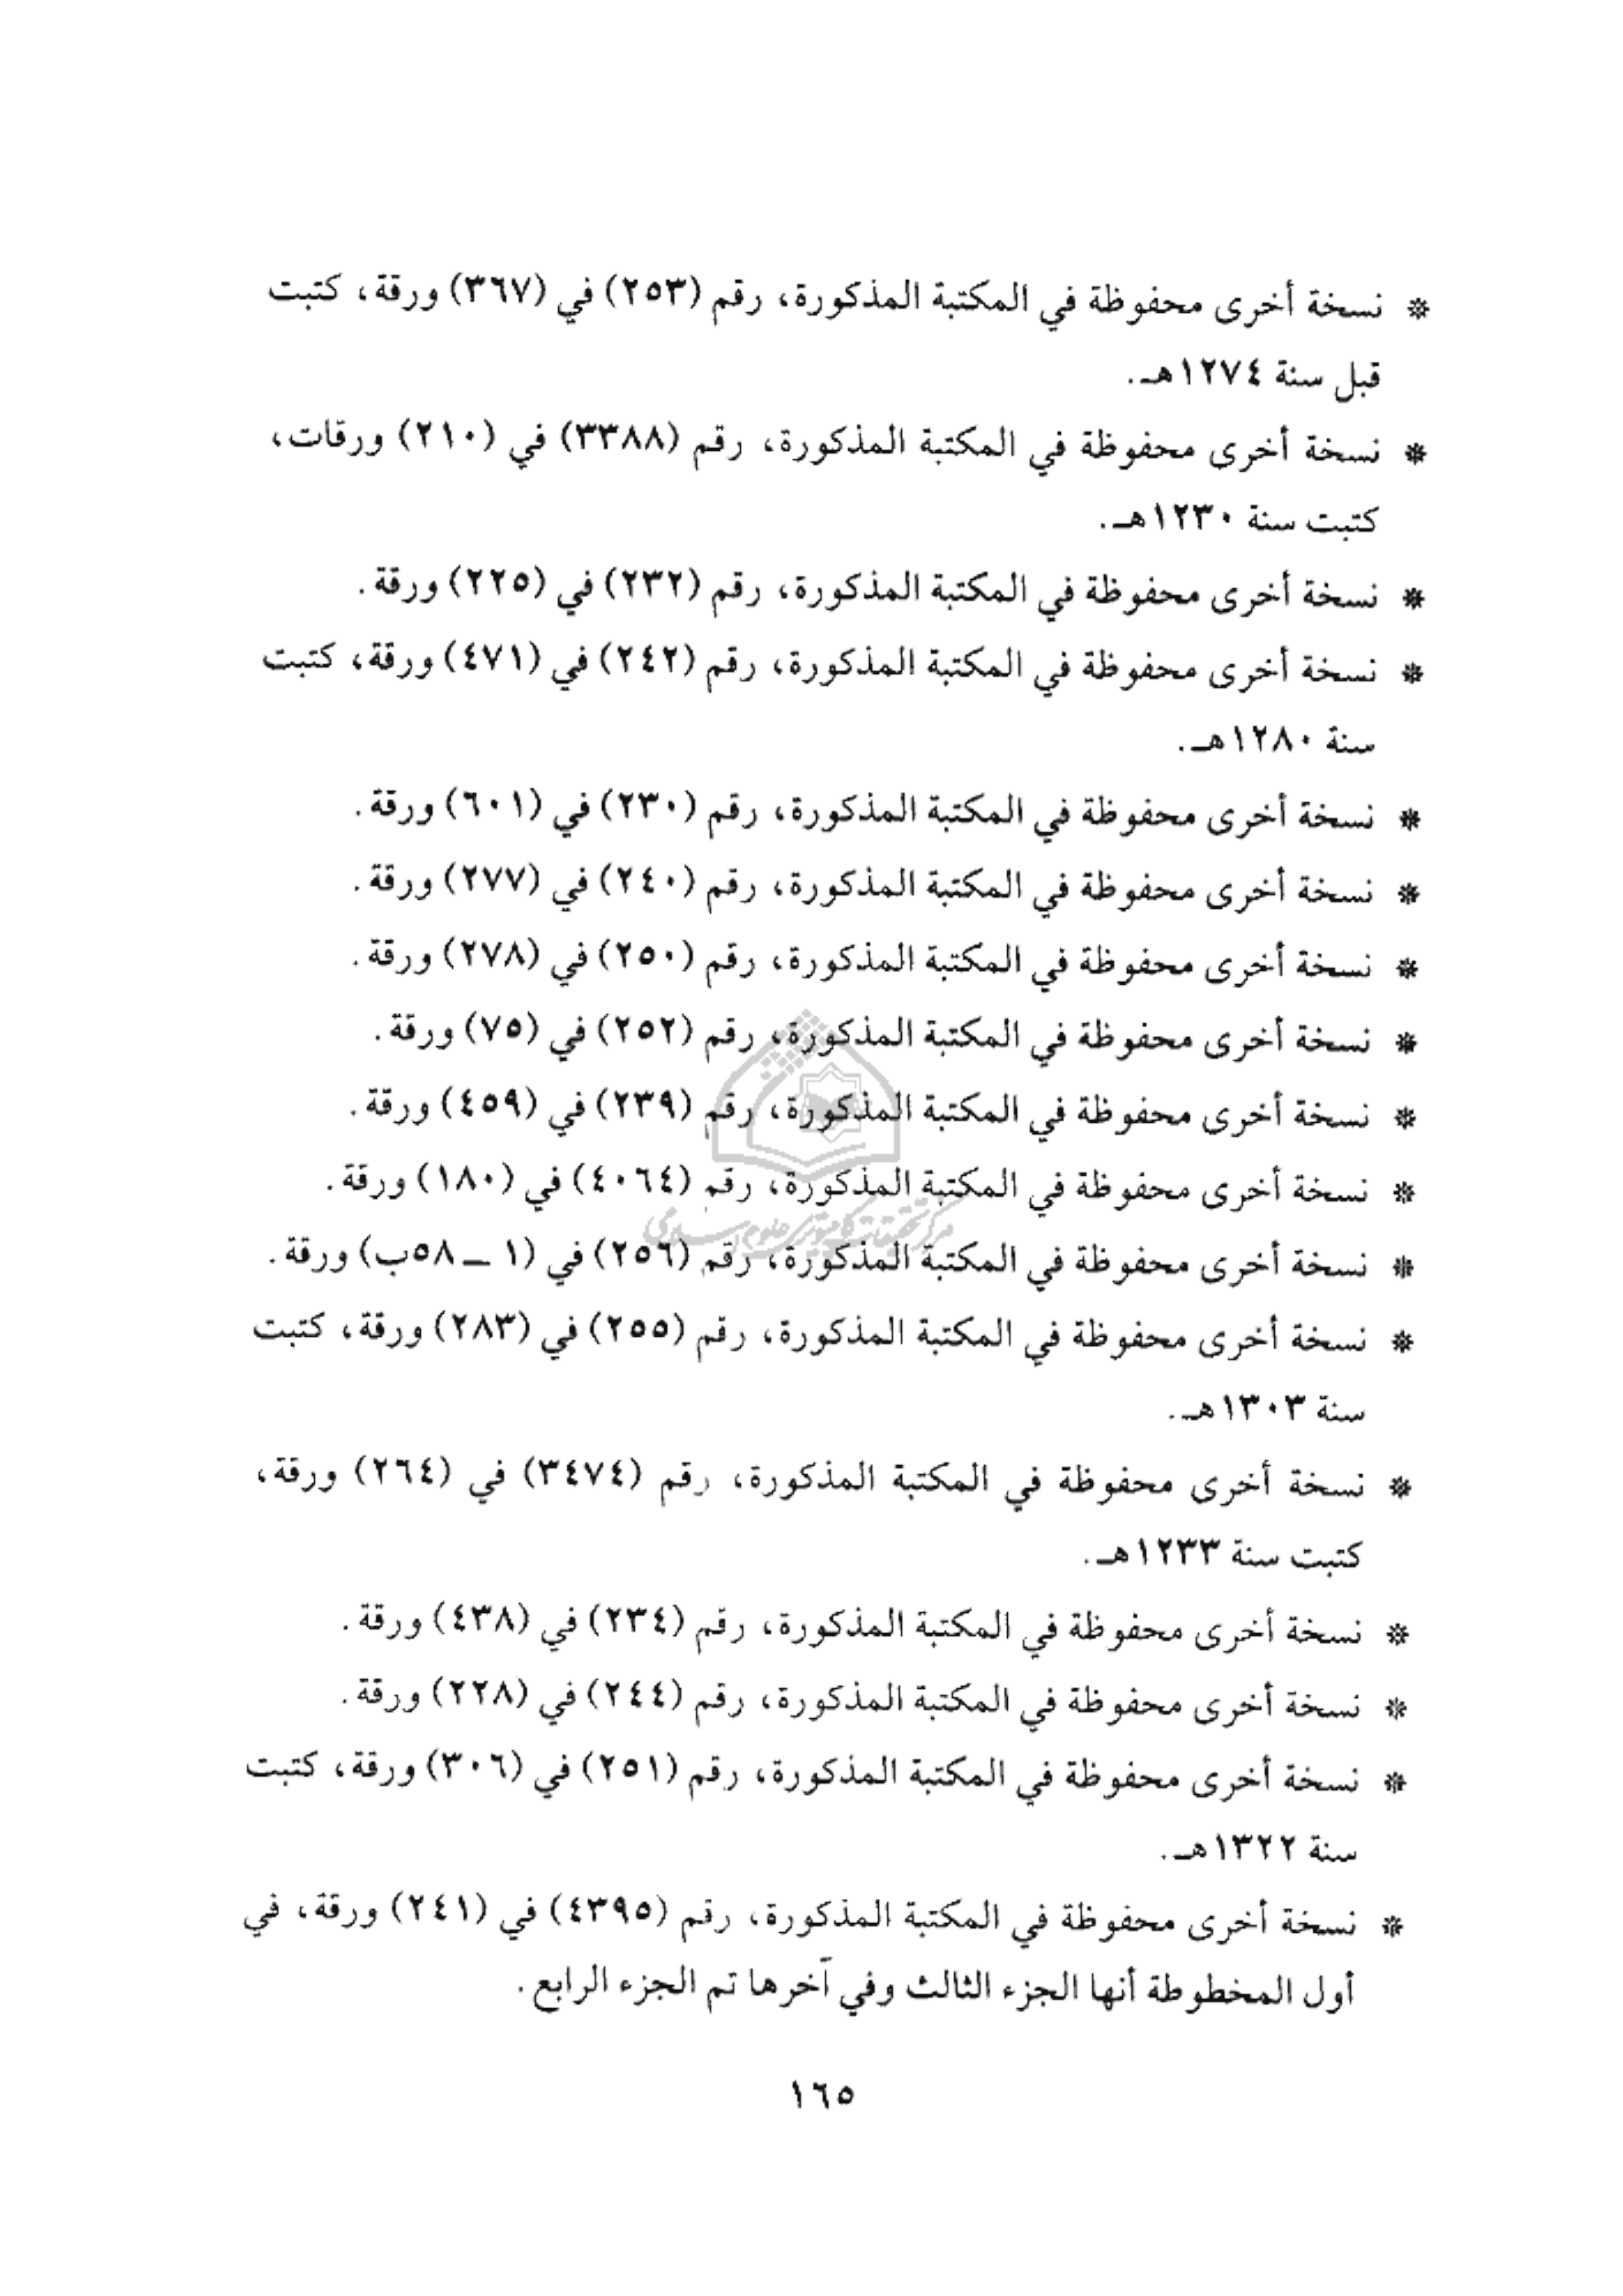 * نسخة أخرى محفوظة في المكتبة المذكورة، رقم (٢٥٣) في (٣٦٧) ورقة، كتبت
قبل سنة ١٢٧٤هـ.
* نسخة أخرى محفوظة في المكتبة المذكورة، رقم (٣٣٨٨) في (٢١٠) ورقات،
كتبت سنة ١٢٣٠هـ.
* نسخة أخرى محفوظة في المكتبة المذكورة، رقم (٢٣٢) في (٢٢٥) ورقة.
* نسخة أخرى محفوظة في المكتبة المذكورة، رقم (٢٤٢) في (٤٧١) ورقة، كتبت
سنة ١٢٨٠هـ.
* نسخة أخرى محفوظة في المكتبة المذكورة، رقم (٢٣٠) في (٦٠١) ورقة.
* نسخة أخرى محفوظة في المكتبة المذكورة، رقم (٢٤٠) في (٢٧٧) ورقة.
* نسخة أخرى محفوظة في المكتبة المذكورة، رقم (٢٥٠) في (٢٧٨) ورقة.
* نسخة أخرى محفوظة في المكتبة المذكورة، رقم (٢٥٢) في (٧٥) ورقة.
* نسخة أخرى محفوظة في المكتبة المذكورة، رقم (٢٣٩) في (٤٥٩) ورقة.
* نسخة أخرى محفوظة في المكتبة المذكورة، رقم (٤٠٦٤) في (١٨٠) ورقة.
مركز تحقيقات كامپيوتری علوم اسلامی
* نسخة أخرى محفوظة في المكتبة المذكورة، رقم (٢٥٦) في (١ ــ ٥٨ب) ورقة.
* نسخة أخرى محفوظة في المكتبة المذكورة، رقم (٢٥٥) في (٢٨٣) ورقة، كتبت
سنة ١٣٠٣هـ.
* نسخة أخرى محفوظة في المكتبة المذكورة، رقم (٣٤٧٤) في (٢٦٤) ورقة،
كتبت سنة ١٢٣٣هـ.
* نسخة أخرى محفوظة في المكتبة المذكورة، رقم (٢٣٤) في (٤٣٨) ورقة.
* نسخة أخرى محفوظة في المكتبة المذكورة، رقم (٢٤٤) في (٢٢٨) ورقة.
* نسخة أخرى محفوظة في المكتبة المذكورة، رقم (٢٥١) في (٣٠٦) ورقة، كتبت
سنة ١٣٢٢هـ.
* نسخة أخرى محفوظة في المكتبة المذكورة، رقم (٤٣٩٥) في (٢٤١) ورقة، في
أول المخطوطة أنها الجزء الثالث وفي آخرها تم الجزء الرابع.
١٦٥